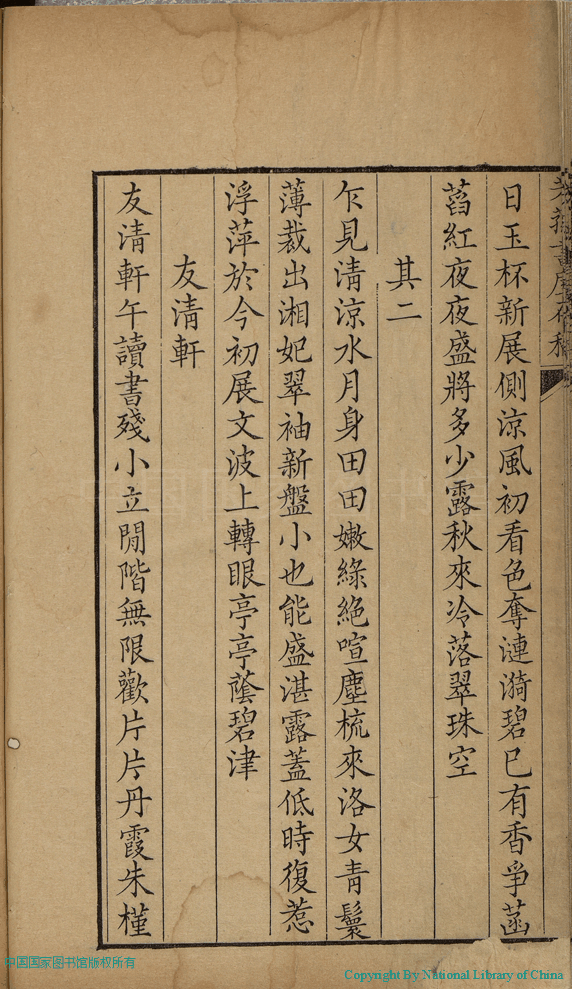 日玉杯新展側涼風初看色奪漣漪碧已有香爭菡
萏紅夜夜盛將多少露秋來冷落翠珠空
其二
乍見清涼水月身田田嫩綠絕喧塵梳來洛女青鬟
薄裁出湘妃翠袖新盤小也能盛湛露蓋低時復惹
浮萍於今初展文波上轉眼亭亭蔭碧津
友清軒
友清軒午讀書殘小立閒階無限歡片片丹霞朱槿
中国国家图书馆版权所有
Copyright By National Library of China